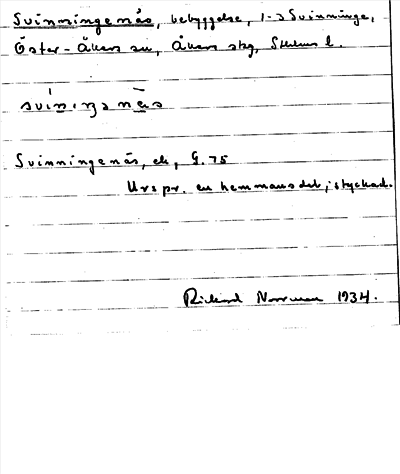 Svinningenäs, bebyggelse, 1-3 Svinninge,
Öster-Åkers sn, Åkers skg, Sthlms l.
svininganäs
Svinningenäs, ek, G. 75
Urspr. en hemmansdel, styckad.
Rickard Norrman 1934.